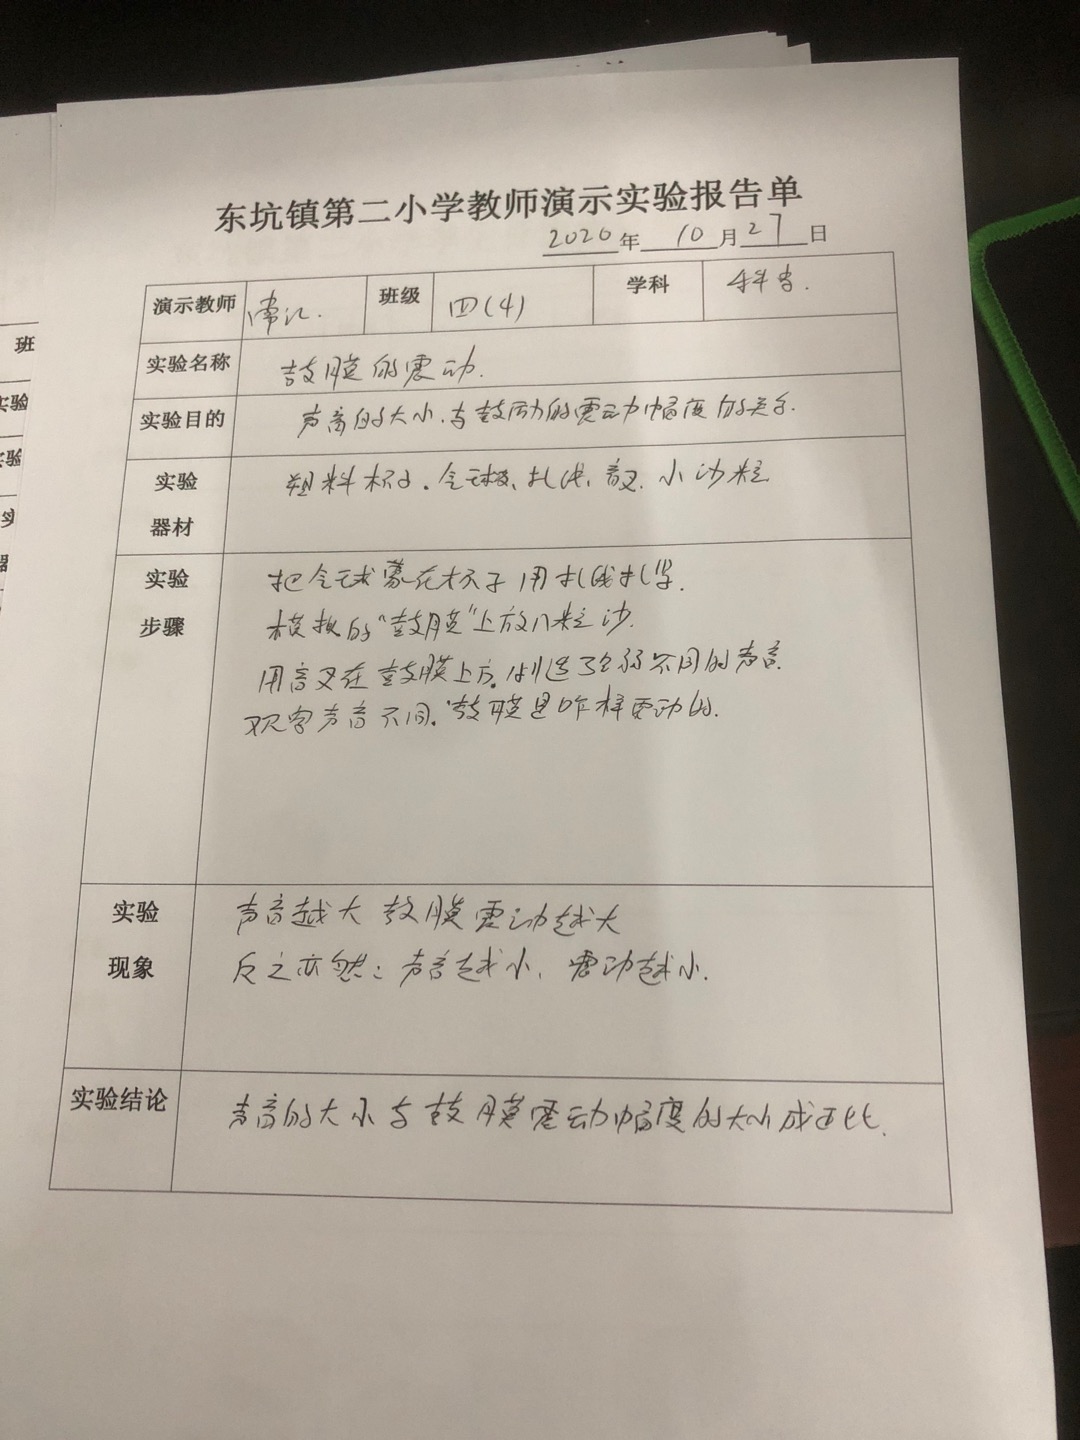 东坑镇第二小学教师演示实验报告单
2020年 10 月 27 日
演示教师 班级 四(4) 学科 科学.
实验名称 鼓膜的震动.
实验目的 声音的大小.与鼓励的震动幅度的关系.
实验 塑料杯子.气球、扎线、音叉.小沙粒
器材
实验 把气球蒙在杯子用扎线扎紧.
步骤 模拟的“鼓膜”上放几粒沙.
用音叉在鼓膜上方.制造强弱不同的声音.
观察声音不同.鼓膜是咋样震动的.
实验 声音越大 鼓膜震动越大
现象 反之亦然:声音越小,震动越小.
实验结论 声音的大小与鼓膜震动幅度的大小成正比.
班
实验
实验
实
器